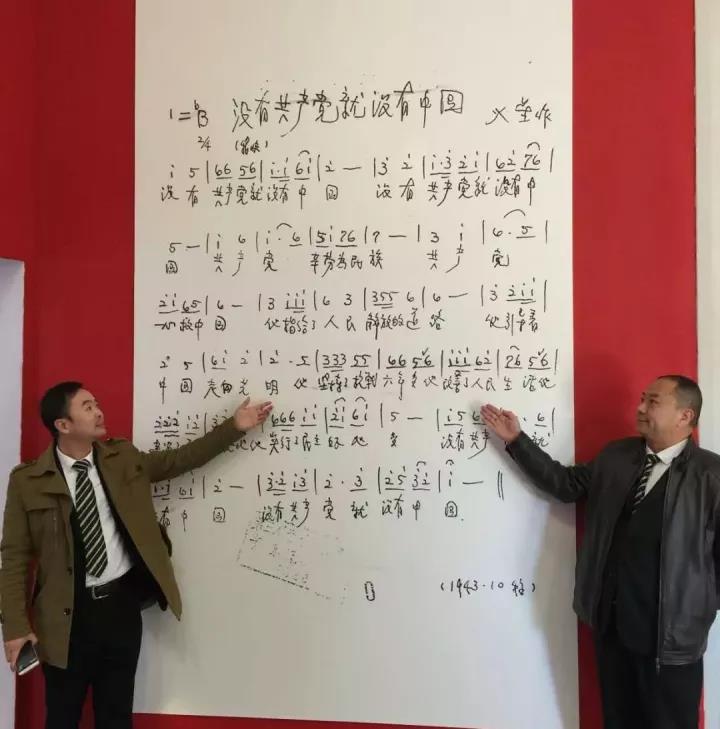 1=♭B 没有共产党就没有中国 火星作
2/4
i 5 | 66 56 | i·i 6i | 2 — | 3 2 | i·3 2i | 62 76 |
没有 共产党就没有中 国 没有 共产党就 没有中
5 — | i 6 | i·6 | 5i 76 | 7 — | 3 i | 6·5 |
国 共产 党 辛劳为民族 共产 党
2i 65 | 6 — | 3 iii | 6 3 | 355 6 | 6 — | 3 2ii |
一心救中国 他指给了人民 解放的道路 他引导着
2 5 | 6i 2 | 2·5 | 333 55 | 66 56 | iii 62 | 76 56 |
中国走向光 明 他坚持了抗战六年多他改善了人民生活他
666 ii | 2i 6i | 5 —
他实行了民主好处多 没有共产 就
i·3 6i | 2 — | 3·2 i3 | 2·3 | 25 32 | i — ‖
没有中 国 没有共产 党 就 没有中 国.
(1943·10稿)